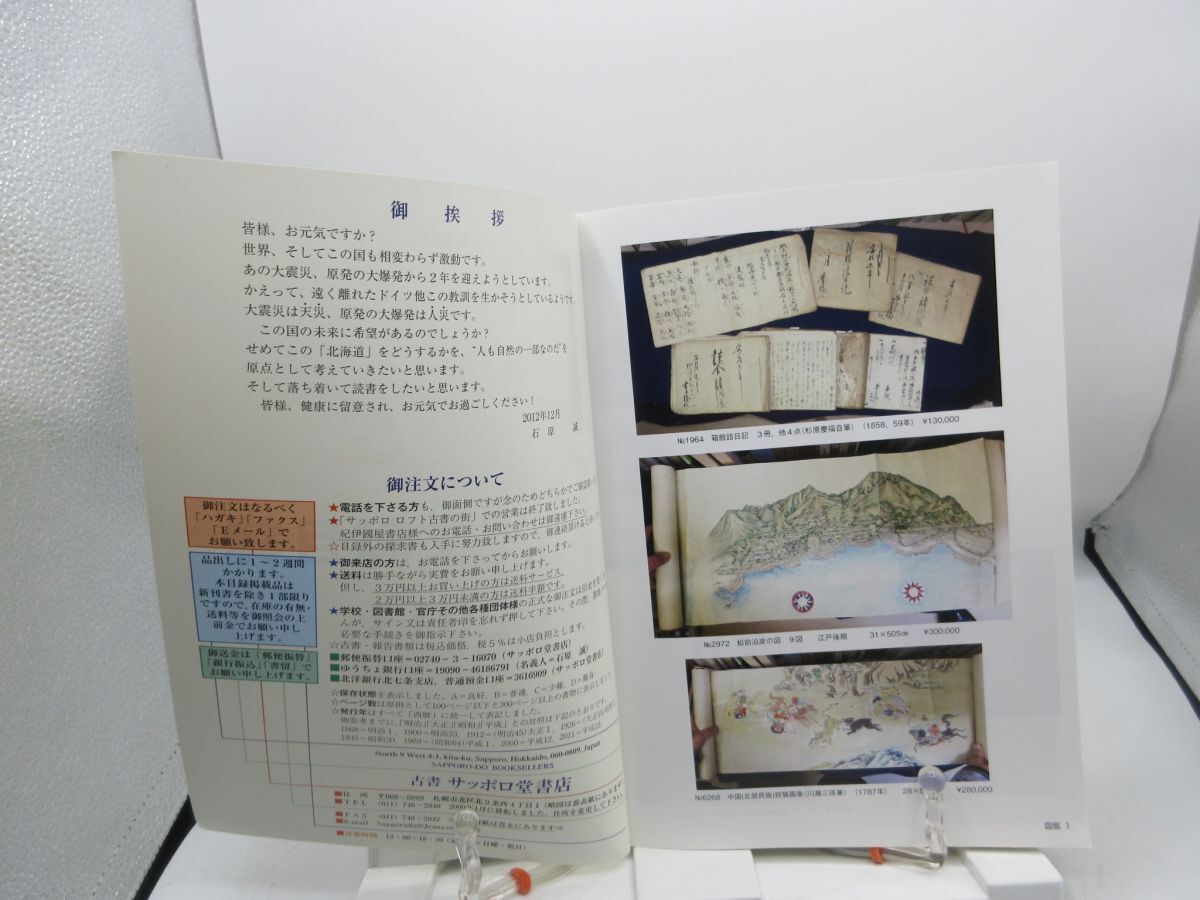 御挨拶
皆様、お元気ですか?
世界、そしてこの国も相変わらず激動です。
あの大震災、原発の大爆発から2年を迎えようとしています。
かえって、遠く離れたドイツ他この教訓を生かそうとしているようです。
大震災は天災、原発の大爆発は人災です。
この国の未来に希望があるのでしょうか?
せめてこの「北海道」をどうするかを、“人も自然の一部なのだ”を
原点として考えていきたいと思います。
そして落ち着いて読書をしたいと思います。
皆様、健康に留意され、お元気でお過ごしください!
2012年12月
石原 誠
御注文について
御注文はなるべく
「ハガキ」「ファクス」
「Eメール」で
お願い致します。
品出しに1~2週間
かかります。
本目録掲載品は
新刊書を除き1部限り
ですので、在庫の有無・
送料等を御照会の上
前金でお願い申し
上げます。
御送金は「郵便振替」
「銀行振込」「書留」で
お願い申し上げます。
★電話を下さる方も、御面倒ですが念のためどちらかでご確認
★「サッポロ ロフト古書の街」での営業は終了致しました。
紀伊國屋書店様へのお電話・お問い合わせは御遠慮下さい。
☆目録外の探求書も入手に努力致しますので、御連絡頂けると
★御来店の方は、お電話を下さってからお願いします。
★送料は勝手ながら実費をお願い申し上げます。
但し、3万円以上お買い上げの方は送料サービス、
2万円以上3万円未満の方は送料半額です。
★学校・図書館・官庁その他各種団体様の正式な御注文は
んが、サイン又は責任者印を忘れず押して下さい。その際、
必要な手続きを御指示下さい。
☆古書・報告書類は税込価格、税5%は小店負担とします。
■郵便振替口座=02740-3-16070(サッポロ堂書店)
■ゆうちょ銀行口座=19090-46186791(名義人=石原 誠)
■北洋銀行北七条支店、普通預金口座=3616909(サッポロ堂書店)
☆保存状態を表示しました。A=良好、B=普通、C=少難、D=難有
☆ページ数は原則として100ページ以下と300ページ以上の書物に表示しました。
☆発行年はすべて「西暦」に統一して表記しました。
御参考までに、「明治」「大正」「昭和」「平成」との対照は下記のとおりです。
1868=明治1、1900=明治33、1912=(明治45)大正1、1926=(大正15)昭和1、
1945=昭和20、1989=(昭和64)平成1、2000=平成12、2011=平成23
North 9 West 4-1, kita-ku, Sapporo, Hokkaido, 060-0809, Japan
SAPPORO-DO BOOKSELLERS
古書 サッポロ堂書店
■住所 〒060-0809 札幌市北区北9条西4丁目1(略図は裏表紙にあります)
■TEL (011)746-2940 2009年1月に移転しました。住所を変更して下さい。
■FAX (011)746-2942
■E-mail
■営業時間 12:00~18:30 日曜・祝日)
№1964 箱館詰日記 3冊、他4点(杉原慶福自筆) (1858, 59年) ¥130,000
№2972 松前沿岸の図 9図 江戸後期 31×505cm ¥300,000
№6268 中国(北部民族)狩猟画巻(川薫三径筆) (1787年) 28× ¥280,000
図版 1